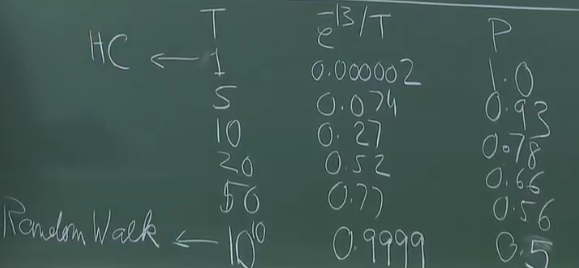 T e^-13/T P
HC ← 1 0.000002 1.0
5 0.074 0.93
10 0.27 0.78
20 0.52 0.66
50 0.77 0.56
Random Walk ← 10^10 0.9999 0.5